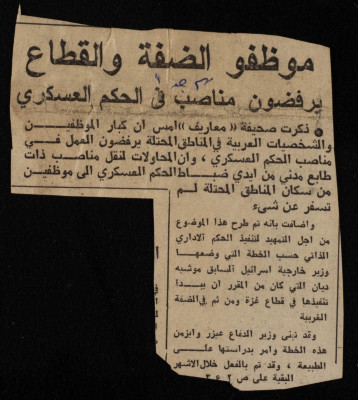 موظفو الضفة والقطاع
يرفضون مناصب في الحكم العسكري
● ذكرت صحيفة «معاريف» امس ان كبار الموظفيــن
والشخصيات العربية في المناطق المحتلة يرفضون العمل فــي
مناصب الحكم العسكري ، وان المحاولات لنقل مناصــب ذات
طابع مدني من ايدي ضبــاط الحكم العسكري الى موظفيــن
من سكان المناطق المحتلة لــم
تسفر عن شيء
واضافت بانه تم طرح هذا الموضوع
من اجل التمهيد لتنفيذ الحكم الاداري
الذاتي حسب الخطة التي وضعهــا
وزير خارجية اسرائيل السابق موشيه
ديان التي كان من المقرر ان يبــدا
تنفيذها في قطاع غزة ومن ثم في الضفة
الغربية
وقد تبنى وزير الدفاع عيزر وايزمن
هذه الخطة وامر بدراستها علــى
الطبيعة ، وقد تم بالفعل خلال الاشهر
البقية على ص ٢ ع ٣